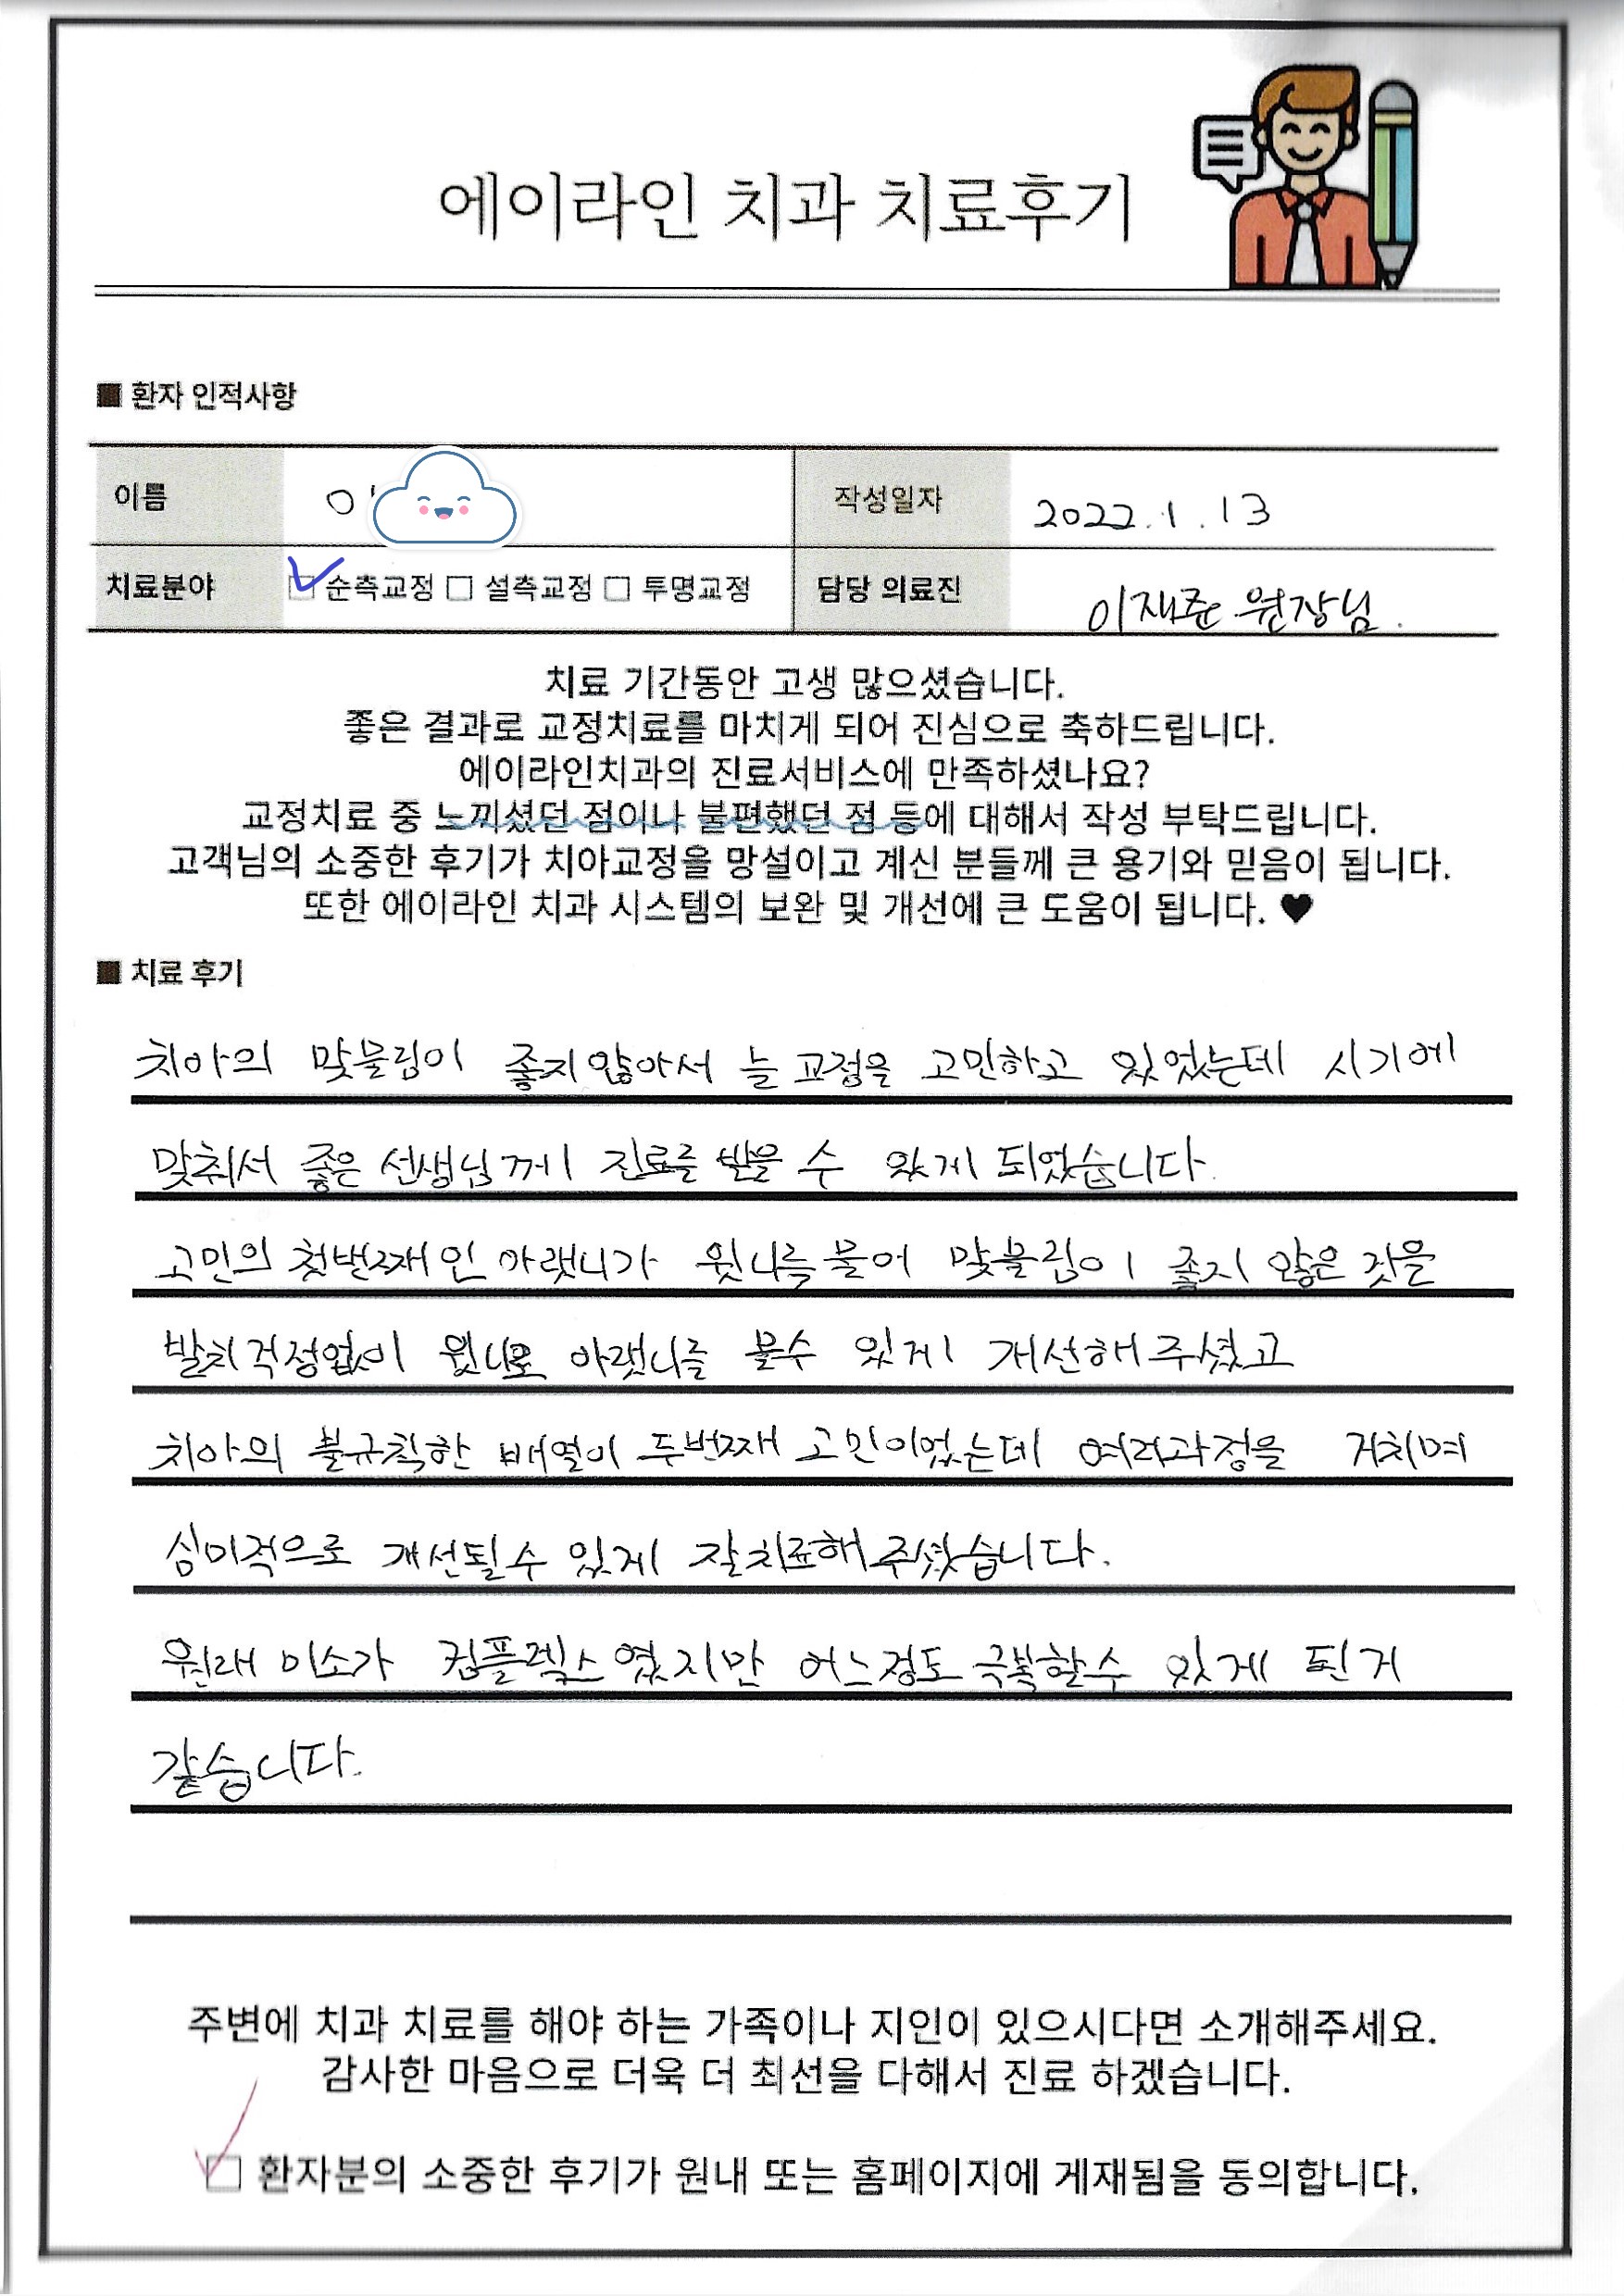 에이라인 치과 치료후기
■ 환자 인적사항
이름 작성일자 2022.1.13
치료분야 순측교정 설측교정 투명교정 담당 의료진 이재준 원장님.
치료 기간동안 고생 많으셨습니다.
좋은 결과로 교정치료를 마치게 되어 진심으로 축하드립니다.
에이라인치과의 진료서비스에 만족하셨나요?
교정치료 중 느끼셨던 점이나 불편했던 점 등에 대해서 작성 부탁드립니다.
고객님의 소중한 후기가 치아교정을 망설이고 계신 분들께 큰 용기와 믿음이 됩니다.
또한 에이라인 치과 시스템의 보완 및 개선에 큰 도움이 됩니다. ♥
■ 치료 후기
치아의 맞물림이 좋지않아서 늘 교정을 고민하고 있었는데 시기에
맞춰서 좋은 선생님께 진료를 받을 수 있게 되었습니다.
고민의 첫번째인 아랫니가 윗니를 물어 맞물림이 좋지 않은 것을
발치걱정없이 윗니로 아랫니를 물수 있게 개선해주셨고
치아의 불규칙한 배열이 두번째 고민이었는데 여러과정을 거치며
심미적으로 개선될수 있게 잘치료해주셨습니다.
원래 미소가 컴플렉스였지만 어느정도 극복할수 있게 된거
같습니다.
주변에 치과 치료를 해야 하는 가족이나 지인이 있으시다면 소개해주세요.
감사한 마음으로 더욱 더 최선을 다해서 진료 하겠습니다.
환자분의 소중한 후기가 원내 또는 홈페이지에 게재됨을 동의합니다.